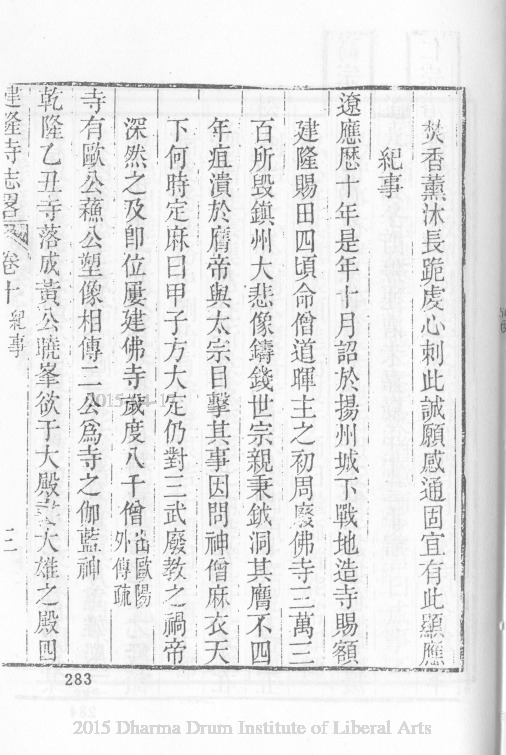 焚香薰沐長跪虔心刺此誠願感通固宜有此顯應
紀事
遼應厯十年是年十月詔於揚州城下戰地造寺賜額
建隆賜田四頃命僧道暉主之初周廢佛寺三萬三
百所毀鎮州大悲像鑄錢世宗親秉鉞洞其膺不四
年疽潰於膺帝與太宗目擊其事因問神僧麻衣天
下何時定麻曰甲子方大定仍對三武廢教之禍帝
深然之及卽位屢建佛寺歲度八千僧出歐陽外傳疏
寺有歐公蘇公塑像相傳二公爲寺之伽藍神
乾隆乙丑寺落成黃公曉峯欲于大殿大雄之殿四
建隆寺志畧 卷十 紀事 三
283
2015-04-1
2015 Dharma Drum Institute of Liberal Arts